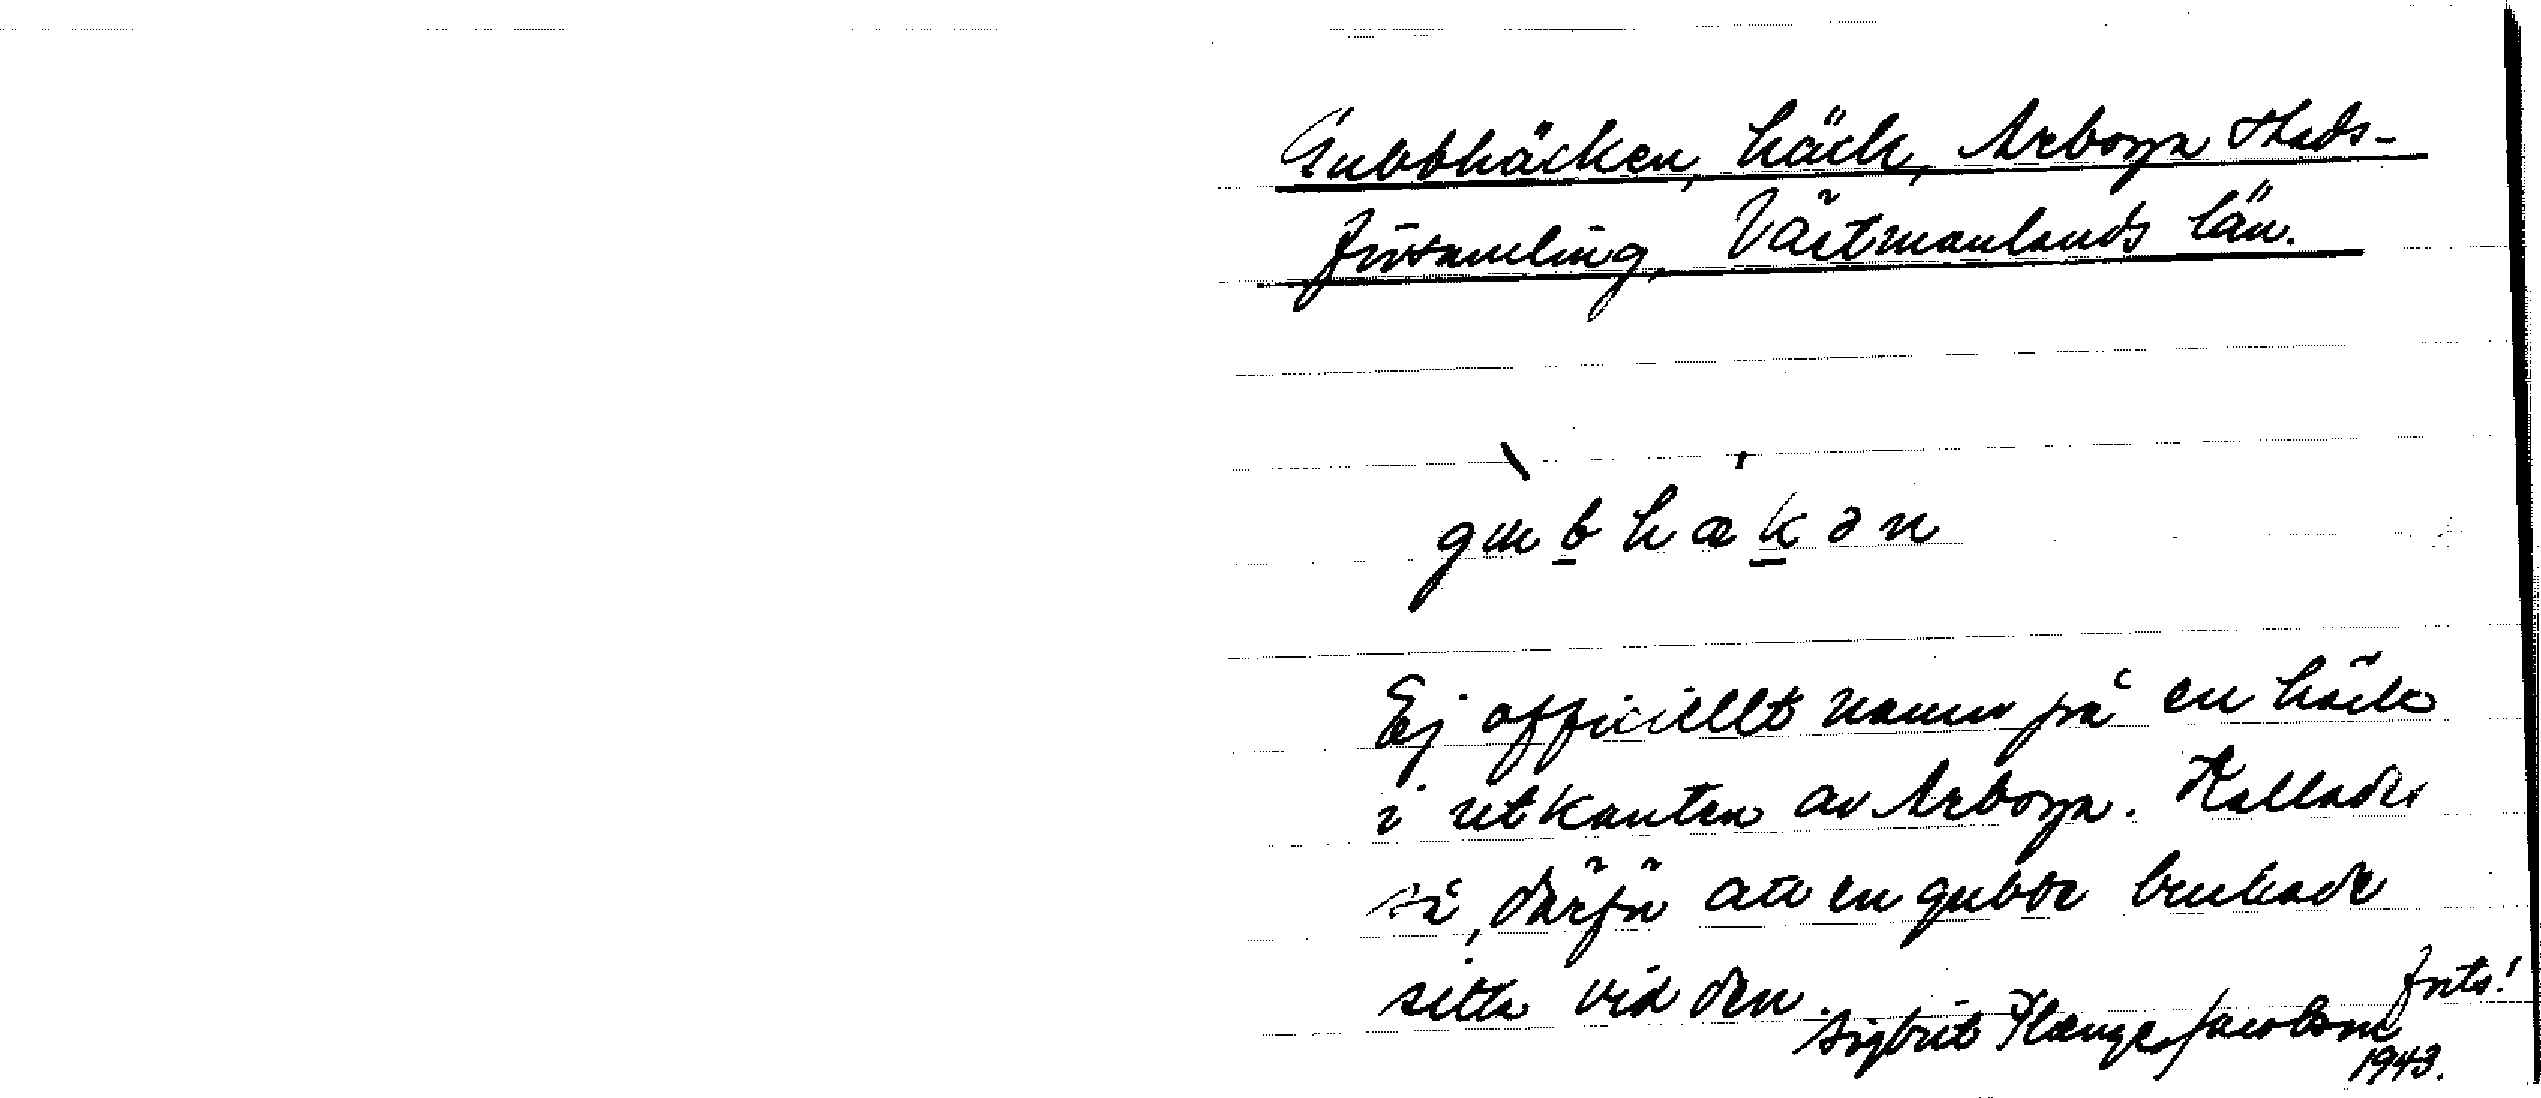 Gubbbäcken, bäck, Arboga stads-
församling, Västmanlands län.
gubbækən
Ej officiellt namn på en bäck
i utkanten av Arboga. Kallades
så, därför att en gubbe brukade
sitta vid den.
forts!
Sigbrit Plænge Jacobson
1943.